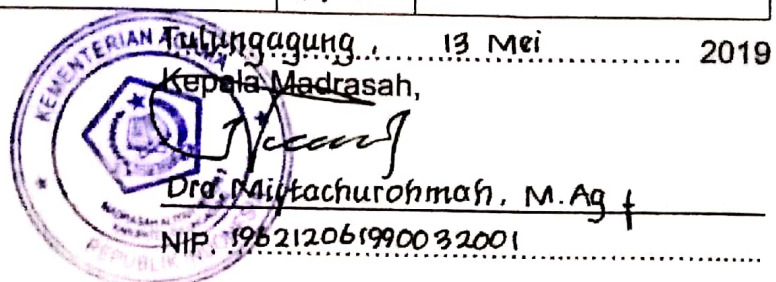 Tulungagung, 13 Mei 2019
Kepala Madrasah,
Dra. Miftachurohmah, M.Ag
NIP. 196212061990032001
KEMENTERIAN AGAMA
REPUBLIK INDONESIA